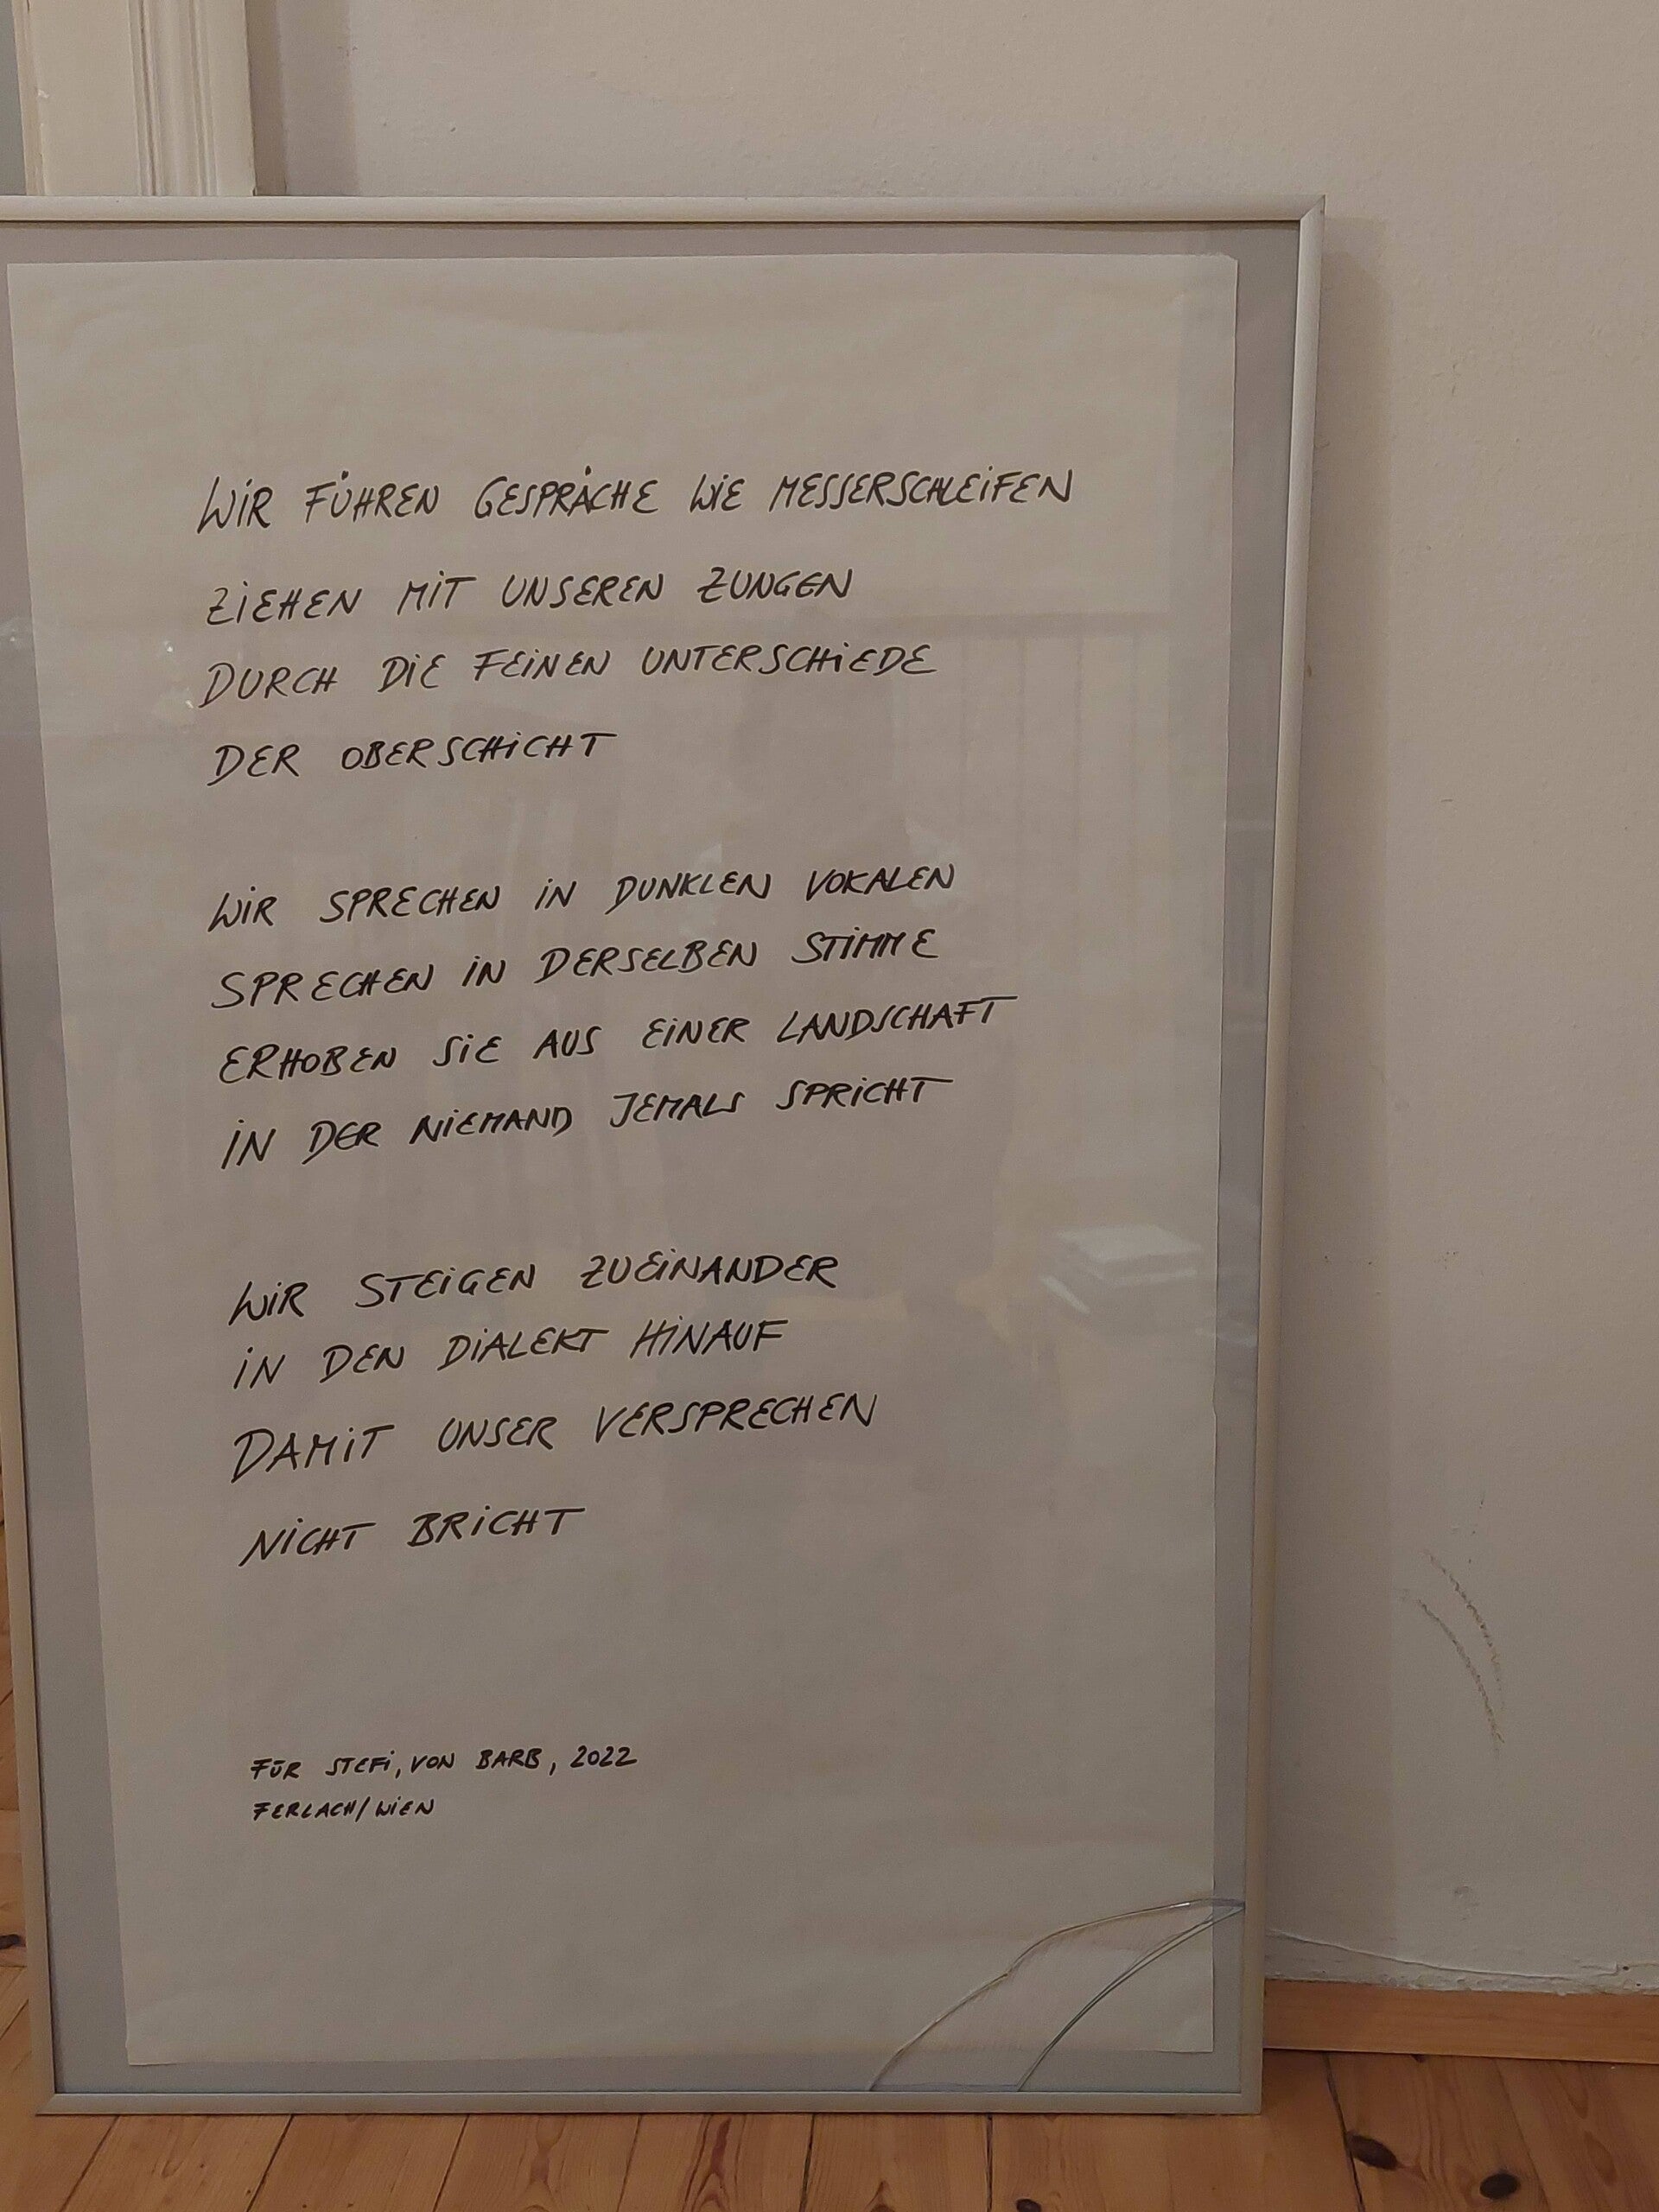 WIR FÜHREN GESPRÄCHE WIE MESSERSCHLEIFEN
ZIEHEN MIT UNSEREN ZUNGEN
DURCH DIE FEINEN UNTERSCHIEDE
DER OBERSCHICHT
WIR SPRECHEN IN DUNKLEN VOKALEN
SPRECHEN IN DERSELBEN STIMME
ERHOBEN SIE AUS EINER LANDSCHAFT
IN DER NIEMAND JEMALS SPRICHT
WIR STEIGEN ZUEINANDER
IN DEN DIALEKT HINAUF
DAMIT UNSER VERSPRECHEN
NICHT BRICHT
FÜR STEFI, VON BARB, 2022
FERLACH/WIEN